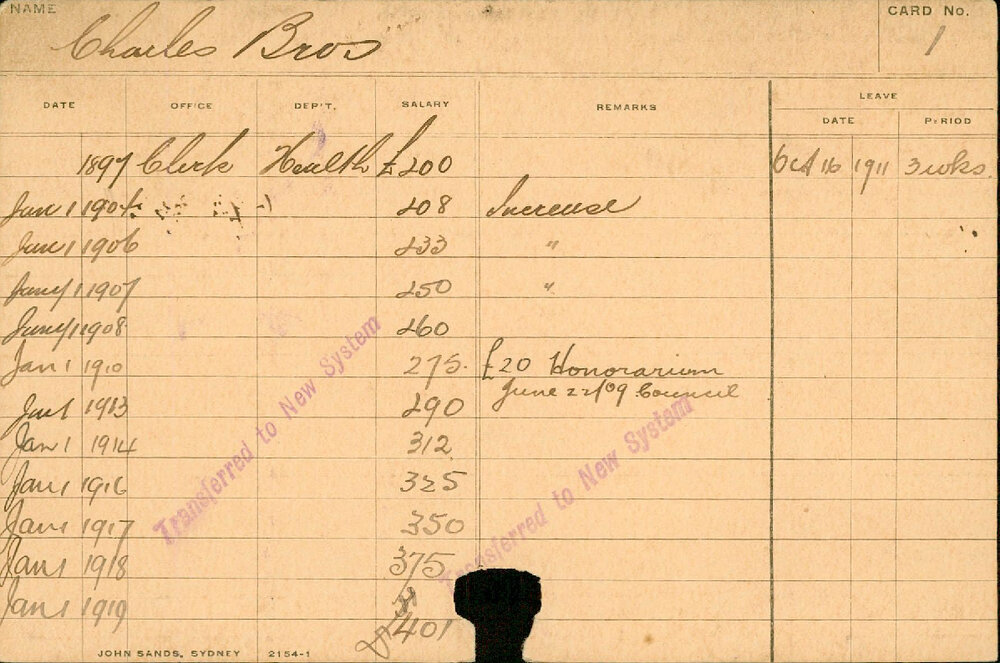 NAME
CARD No.
Charles Bros
1
DATE OFFICE DEP'T. SALARY REMARKS LEAVE
DATE PERIOD
1897 Clerk Health £200 Oct 16 1911 3 wks.
Jan 1 1904 208 Increase
Jan 1 1906 233 "
Jany 1 1907 250 "
Jany 1 1908 260
Jan 1 1910 275. £20 Honorarium
June 22/09 Council
Jan 1 1913 290
Jan 1 1914 312
Jan 1 1916 325
Jan 1 1917 350
Jan 1 1918 375
Jan 1 1919 401
Transferred to New System
Transferred to New System
JOHN SANDS, SYDNEY 2154-1